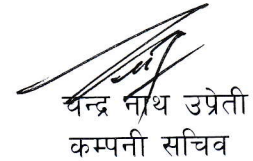 चन्द्र नाथ उप्रेती
कम्पनी सचिव